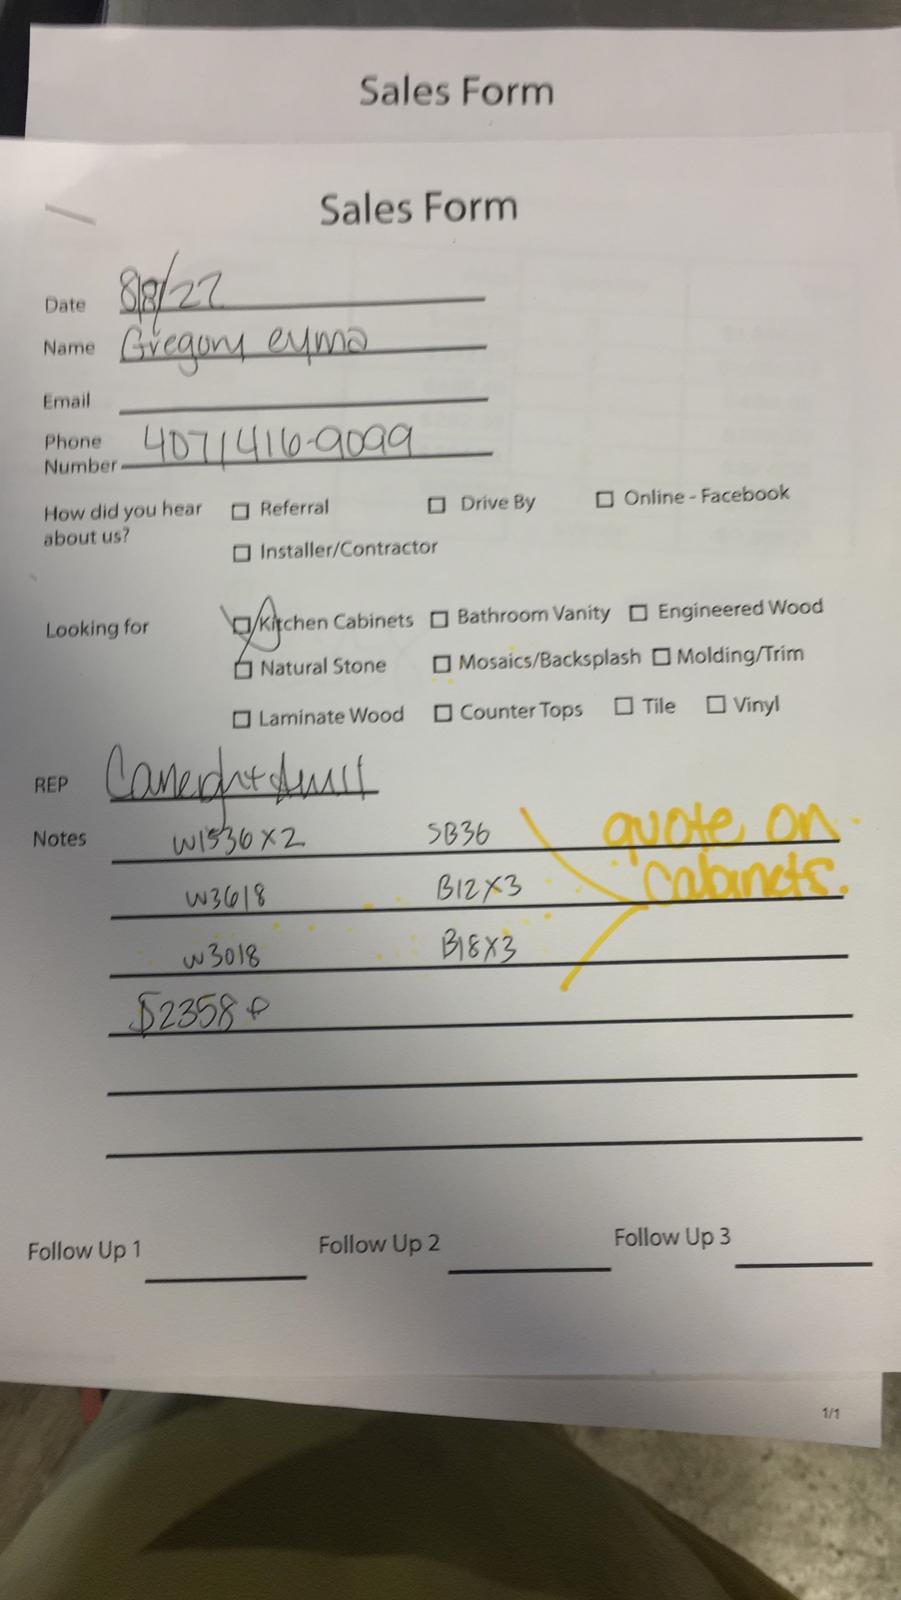 Sales Form
Sales Form
Date 8/8/22
Name Gregory eyma
Email
Phone
Number 407/416-9099
How did you hear
about us?
☐ Referral ☐ Drive By ☐ Online - Facebook
☐ Installer/Contractor
Looking for
☐ Kitchen Cabinets ☐ Bathroom Vanity ☐ Engineered Wood
☐ Natural Stone ☐ Mosaics/Backsplash ☐ Molding/Trim
☐ Laminate Wood ☐ Counter Tops ☐ Tile ☐ Vinyl
REP
Notes W1536X2 SB36 quote on
W3618 B12X3 cabinets.
W3018 B18X3
$2358
Follow Up 1 Follow Up 2 Follow Up 3
1/1